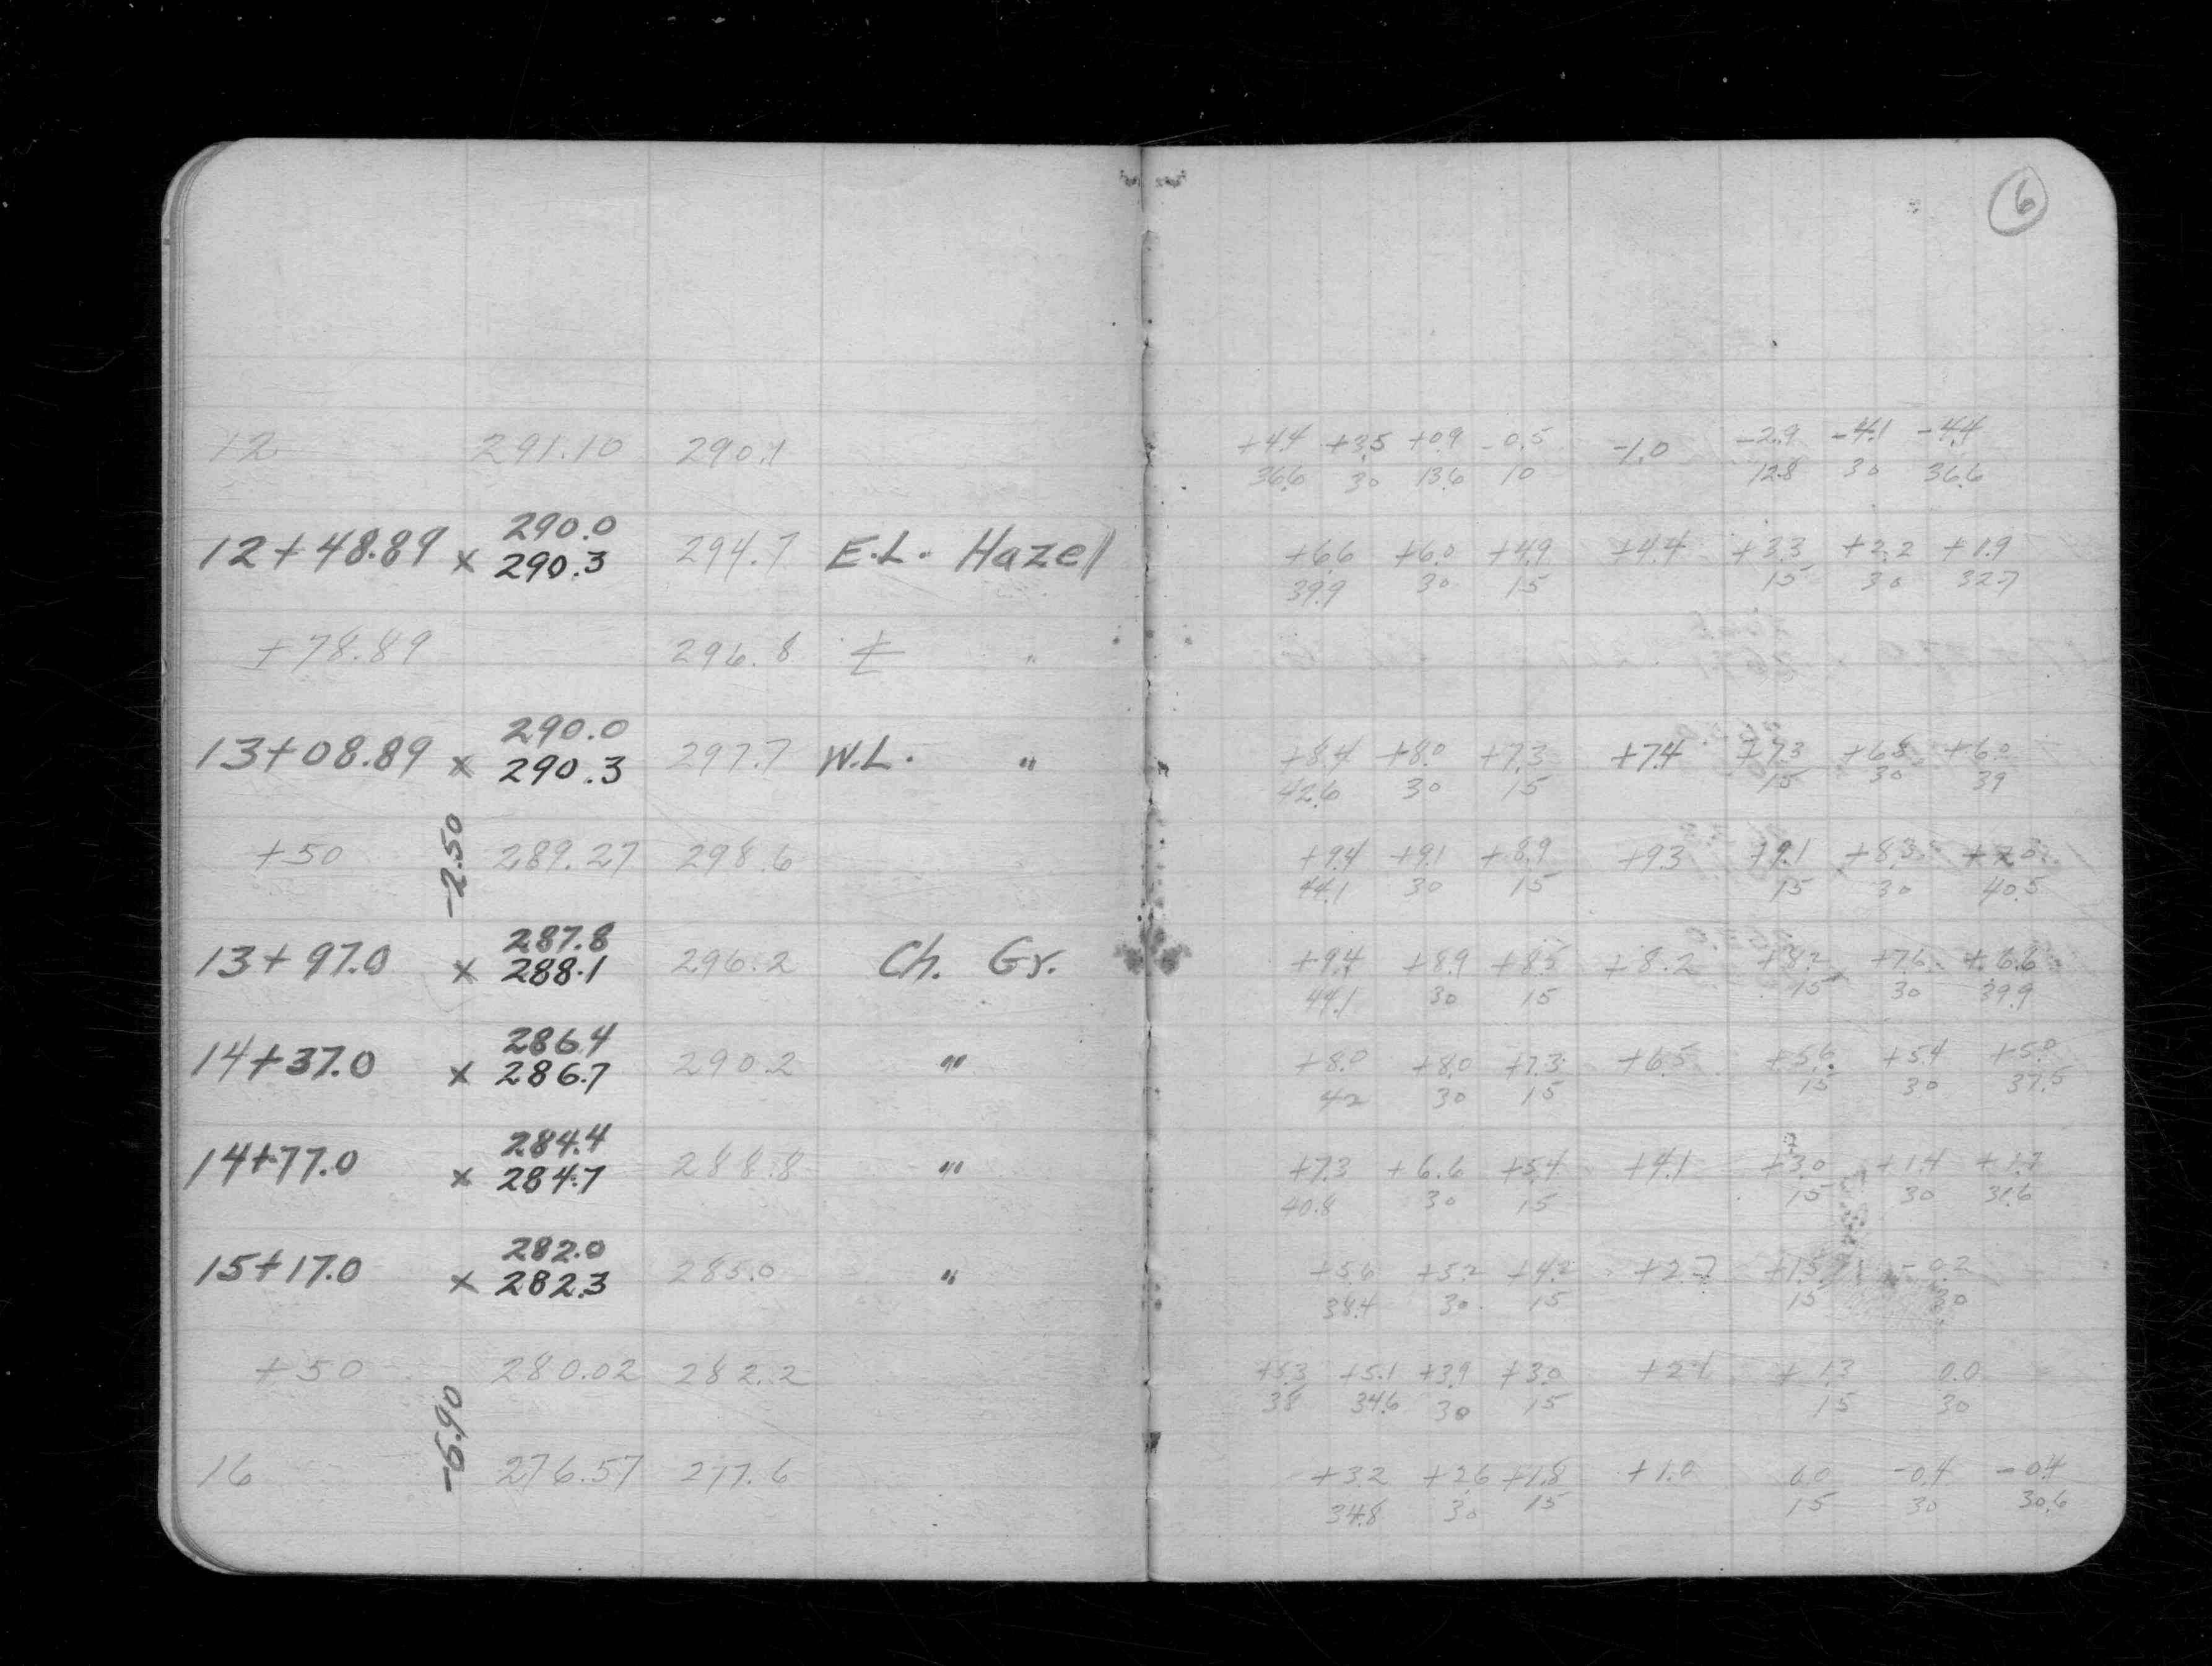 6
12 291.10 290.1 +4.4 +3.5 +0.9 -0.5 -1.0 -2.9 -4.1 -4.4
36.6 30 13.6 10 12.8 30 36.6
290.0
12+48.89 x 290.3 294.7 E.L. Hazel +6.6 +6.0 +4.9 +4.4 +3.3 +2.2 +1.9
39.9 30 15 15 30 32.7
+78.89 296.8 "
290.0
13+08.89 x 290.3 297.7 W.L. " +8.4 +8.0 +7.3 +7.4 +7.3 +6.8 +6.0
42.6 30 15 15 30 39
-2.50
+50 289.27 298.6 +9.4 +9.1 +8.9 +9.3 +9.1 +8.3 +7.0
44.1 30 15 15 30 40.5
287.8
13+97.0 x 288.1 296.2 Ch. Gr. +9.4 +8.9 +8.5 +8.2 +8.2 +7.6 +6.6
44.1 30 15 15 30 39.9
286.4
14+37.0 x 286.7 290.2 " +8.0 +8.0 +7.3 +6.5 +5.6 +5.4 +5.0
42 30 15 15 30 37.5
284.4
14+77.0 x 284.7 288.8 " +7.3 +6.6 +5.4 +4.1 +3.0 +1.4
40.8 30 15 15 30 31.6
282.0
15+17.0 x 282.3 285.0 " +5.6 +5.2 +4.2 +2.7 +1.5 -0.2
38.4 30 15 15 30
+50 280.02 282.2 +5.3 +5.1 +3.9 +3.0 +2.1 +1.3 0.0
38 34.6 30 15 15 30
-6.90
16 276.57 277.6 +3.2 +2.6 +1.8 +1.0 0.0 -0.4 -0.4
34.8 30 15 15 30 30.6